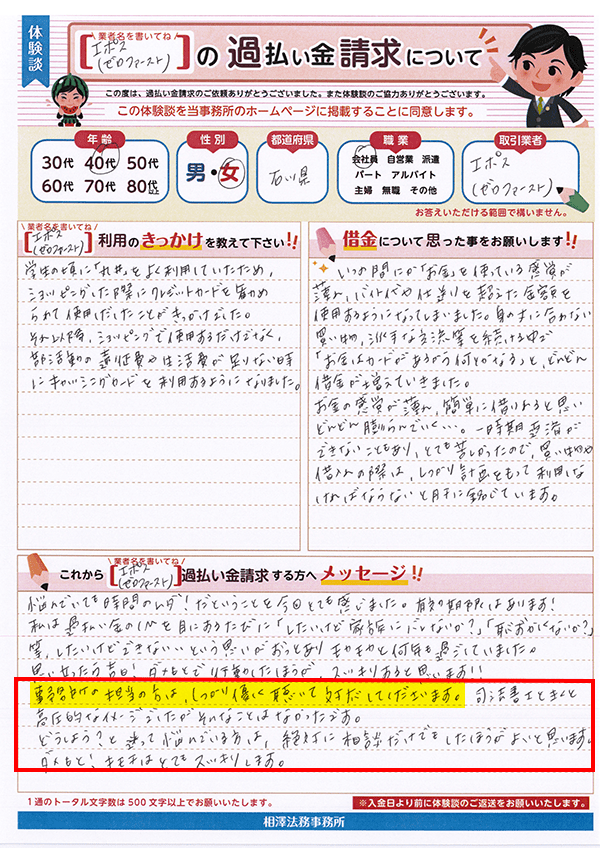 体験談
業者名を書いてね
[エポス(ゼロファースト)]の過払い金請求について
この度は、過払い金請求のご依頼ありがとうございました。また体験談のご協力ありがとうございます。
この体験談を当事務所のホームページに掲載することに同意します。
年齢
30代 40代 50代
60代 70代 80代以上
性別
男・女
都道府県
石川県
職業
会社員 自営業 派遣
パート アルバイト
主婦 無職 その他
取引業者
エポス
(ゼロファースト)
お答えいただける範囲で構いません。
業者名を書いてね
[エポス(ゼロファースト)]利用のきっかけを教えて下さい!!
学生の頃に「丸井」をよく利用していたため、
ショッピングした際にクレジットカードを勧め
られて使用しだしたことがきっかけでした。
それ以降、ショッピングで使用するだけでなく、
部活動の遠征費や生活費が足りない時
にキャッシングカードを利用するようになりました。
借金について思った事をお願いします!!
いつの間にか「お金」を使っている感覚が
薄れ、バイト代や仕送りを超えた金額を
使用するようになってしまいました。身の丈に合わない
買い物、派手な交流等を続ける中で
「お金はカードがあるから何とかなる」と、どんどん
借金が増えていきました。
お金の感覚が薄れ、簡単に借りれると思い
どんどん膨らんでいく…。一時期返済が
できないこともあり、とても苦しかったので、買い物や
借入れの際は、しっかり計画をもって利用しな
ければならないと肝に銘じています。
業者名を書いてね
これから[エポス(ゼロファースト)]過払い金請求する方へメッセージ!!
悩んでいても時間のムダ!だということを今回とても感じました。有効期限はあります!
私は過払い金のCMを目にするたびに「したいけど家族にバレないか?」「恥ずかしくないか?」
等、したいけどできないという思いがずっとありモヤモヤと何年も過していました。
思い立ったら吉日!ダメもとで行動したほうが、スッキリすると思います!!
事務所の担当の方は、しっかり優しく聴いて対応してくださいます。司法書士ときくと
高圧的なイメージでしたがそんなことはなかったです。
どうしよう?と迷って悩んでいる方は、絶対に相談だけでもしたほうがよいと思います。
ダメもと!キモチはとてもスッキリします。
1通のトータル文字数は500文字以上でお願いいたします。
※入金日より前に体験談のご返送をお願いいたします。
相澤法務事務所